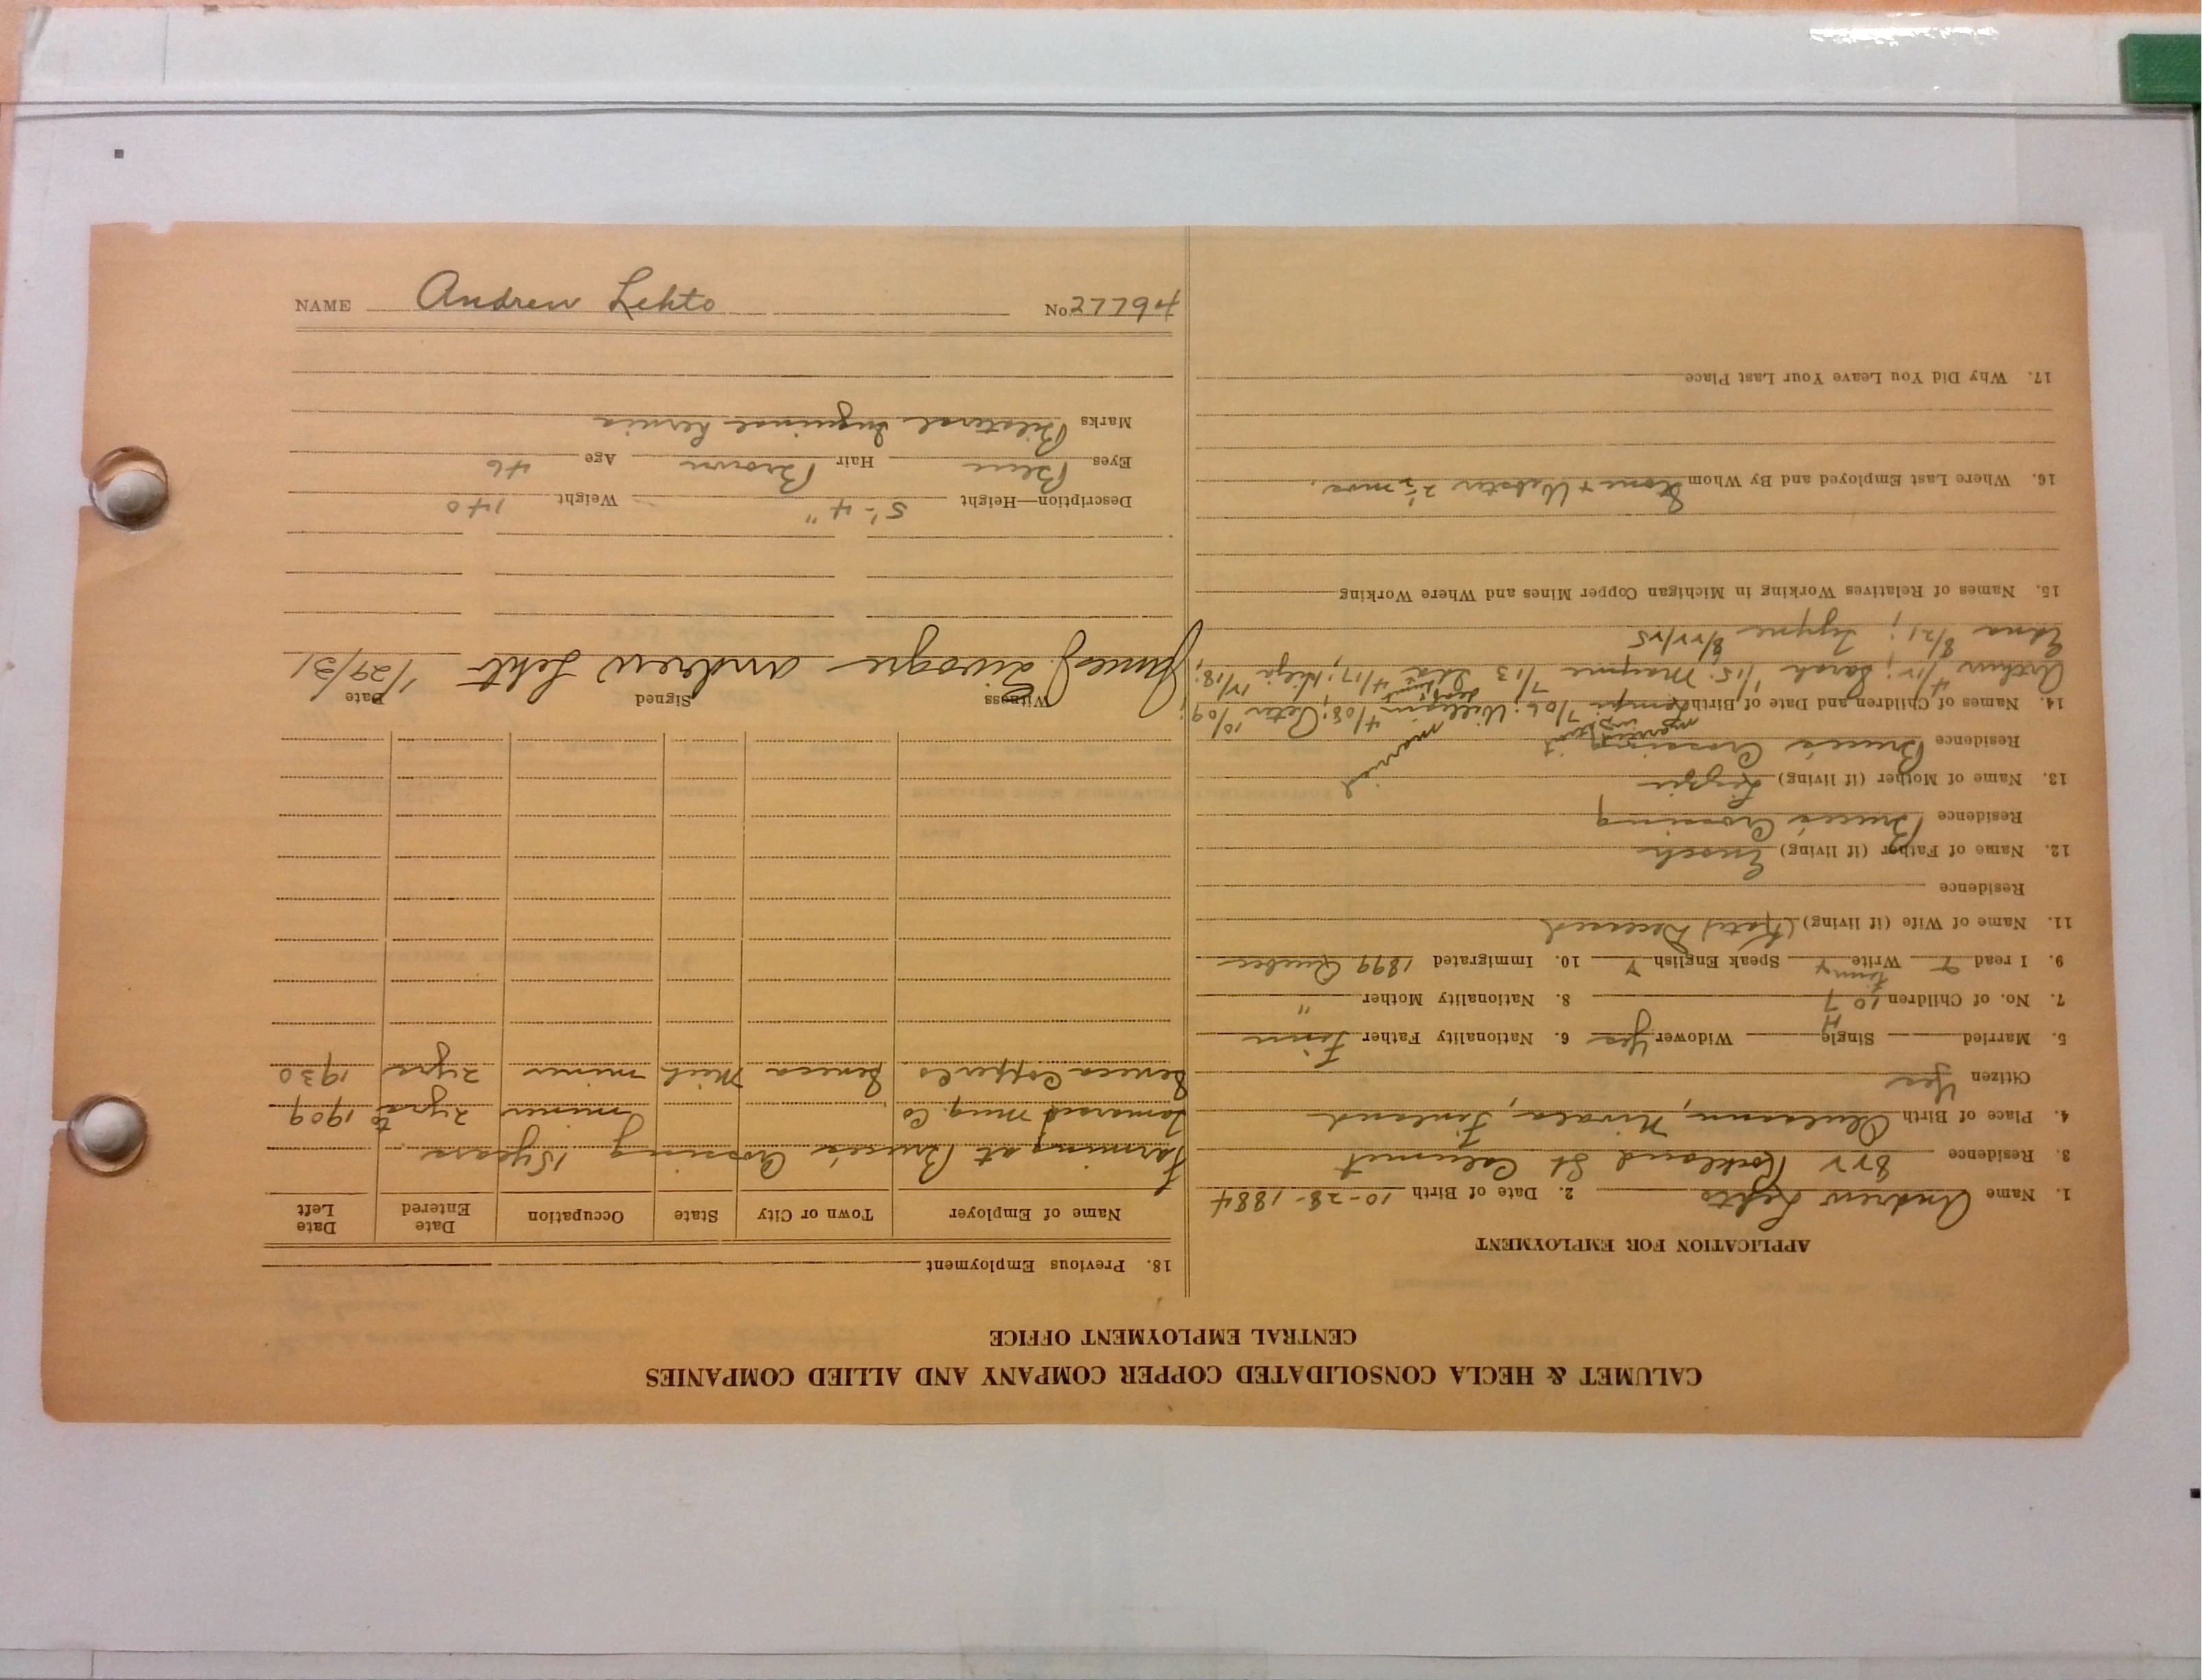 CALUMET & HECLA CONSOLIDATED COPPER COMPANY AND ALLIED COMPANIES
CENTRAL EMPLOYMENT OFFICE
APPLICATION FOR EMPLOYMENT
1. Name Andrew Lehto 2. Date of Birth 10-28-1884
3. Residence 822 Rockland St Calumet
4. Place of Birth Nivala, Finland
Citizen Yes
5. Married Single Widower Yes 6. Nationality Father Finn
7. No. of Children 10 7 8. Nationality Mother "
9. I read Y Write Y Finn Speak English Y 10. Immigrated 1899 Quebec
11. Name of Wife (if living) (Kate) Deceased
Residence
12. Name of Father (if living) Enoch
Residence Bruce's Crossing
13. Name of Mother (if living) Lizzie
Residence Bruce's Crossing
married
married
14. Names of Children and Date of Birth Lempi 7/06; William 4/08; Peter 10/09;
Arthur 4/12; Sarah 1/15; Mayme 7/13 4/17; Hilja 12/18;
Edna 8/21; 8/22/25
15. Names of Relatives Working in Michigan Copper Mines and Where Working
16. Where Last Employed and By Whom Stone & Webster 2½ mos.
17. Why Did You Leave Your Last Place
18. Previous Employment
Name of Employer Town or City State Occupation Date Entered Date Left
Farming at Bruce's Crossing 15 years
Tamarack Mng. Co miner 2 yrs to 1909
Seneca Copper Co Seneca Mich miner 2 yrs 1930
Witness Signed Date
James J. Andrew Leht 1/29/31
Description—Height 5'-4" Weight 140
Eyes Blue Hair Brown Age 46
Marks Bilateral Inguinal hernia
NAME Andrew Lehto No 27794